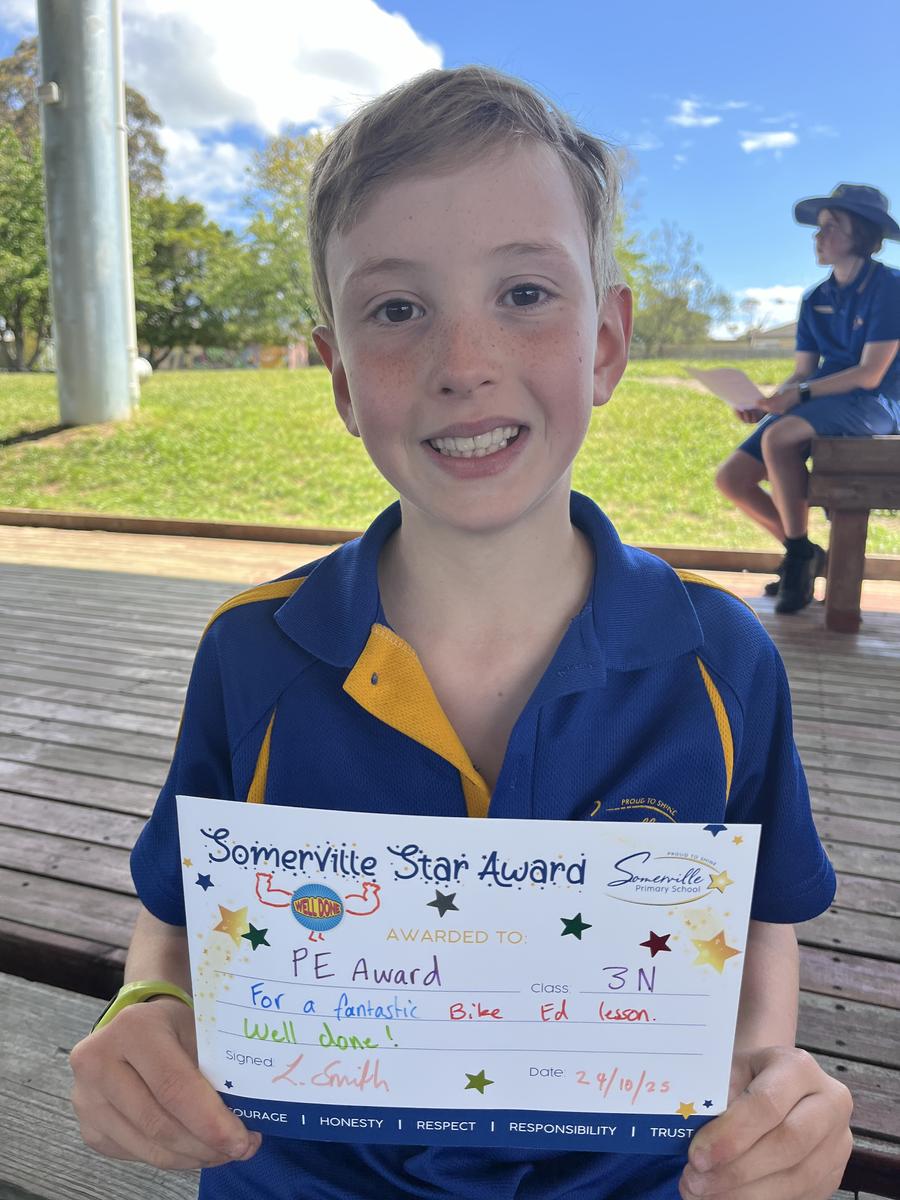 PROUD TO SHINE
Somerville Star Award
PROUD TO SHINE
Somerville
Primary School
WELL DONE
AWARDED TO:
PE Award Class: 3N
For a fantastic Bike Ed lesson.
Well done!
Signed: L. Smith Date: 29/10/25
COURAGE | HONESTY | RESPECT | RESPONSIBILITY | TRUST